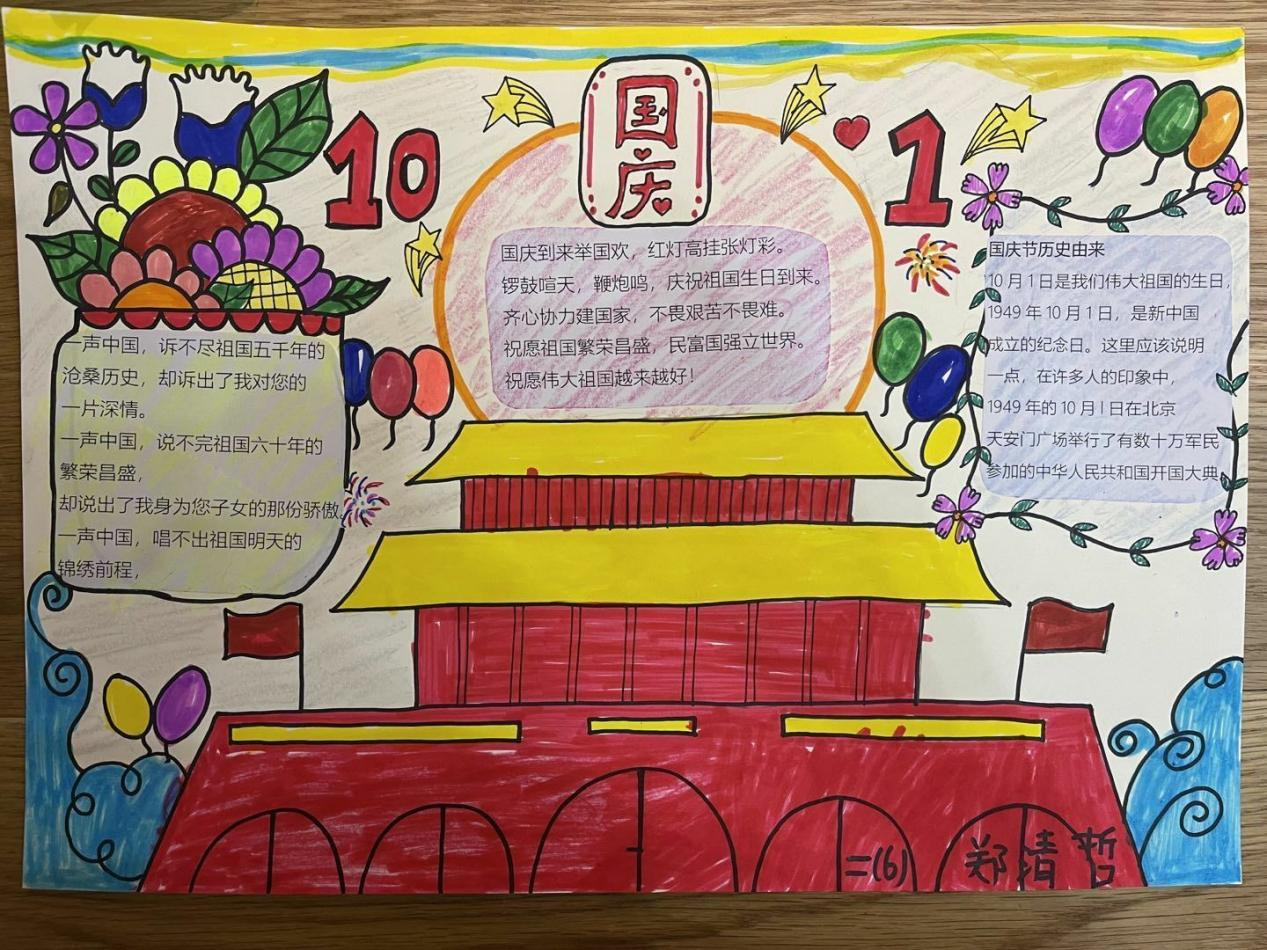 国庆
10
1
国庆到来举国欢，红灯高挂张灯彩。
锣鼓喧天，鞭炮鸣，庆祝祖国生日到来。
齐心协力建国家，不畏艰苦不畏难。
祝愿祖国繁荣昌盛，民富国强立世界。
祝愿伟大祖国越来越好！
一声中国，诉不尽祖国五千年的
沧桑历史，却诉出了我对您的
一片深情。
一声中国，说不完祖国六十年的
繁荣昌盛，
却说出了我身为您子女的那份骄傲。
一声中国，唱不出祖国明天的
锦绣前程，
国庆节历史由来
10 月 1 日是我们伟大祖国的生日，
1949 年 10 月 1 日，是新中国
成立的纪念日。这里应该说明
一点，在许多人的印象中，
1949 年的 10 月 1 日在北京
天安门广场举行了有数十万军民
参加的中华人民共和国开国大典。
二(6) 郑清哲